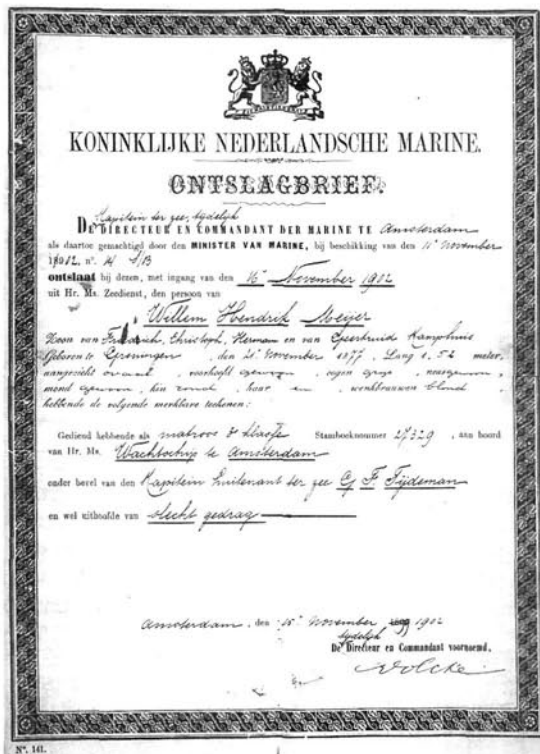 KONINKLIJKE NEDERLANDSCHE MARINE.
ONTSLAGBRIEF.
Kapitein ter zee, tijdelijk
DE DIRECTEUR EN COMMANDANT DER MARINE TE Amsterdam
als daartoe gemachtigd door den MINISTER VAN MARINE, bij beschikking van den 11n November
1902, no. 14
ontslaat bij dezen, met ingang van den 16n November 1902
uit Hr. Ms. Zeedienst, den persoon van
Willem Hendrik Meijer
Zoon van Friedrich, Christoph, Herman en van Geertruid Kamphuis
Geboren te Groningen, den 21n November 1877, Lang 1,52 meter,
aangezicht ovaal, voorhoofd gewoon, oogen grijs, neus gewoon,
mond gewoon, kin rond, haar en, wenkbrauwen blond
hebbende de volgende merkbare teekenen:
Gediend hebbende als matroos 3e klasse Stamboeknummer 27329, aan boord
van Hr. Ms. Wachtschip te Amsterdam
onder bevel van den Kapitein Luitenant ter zee G F Tijdeman
en wel uithoofde van slecht gedrag
Amsterdam, den 15n November 1902
tijdelijk
De Directeur en Commandant voornoemd,
No. 141.